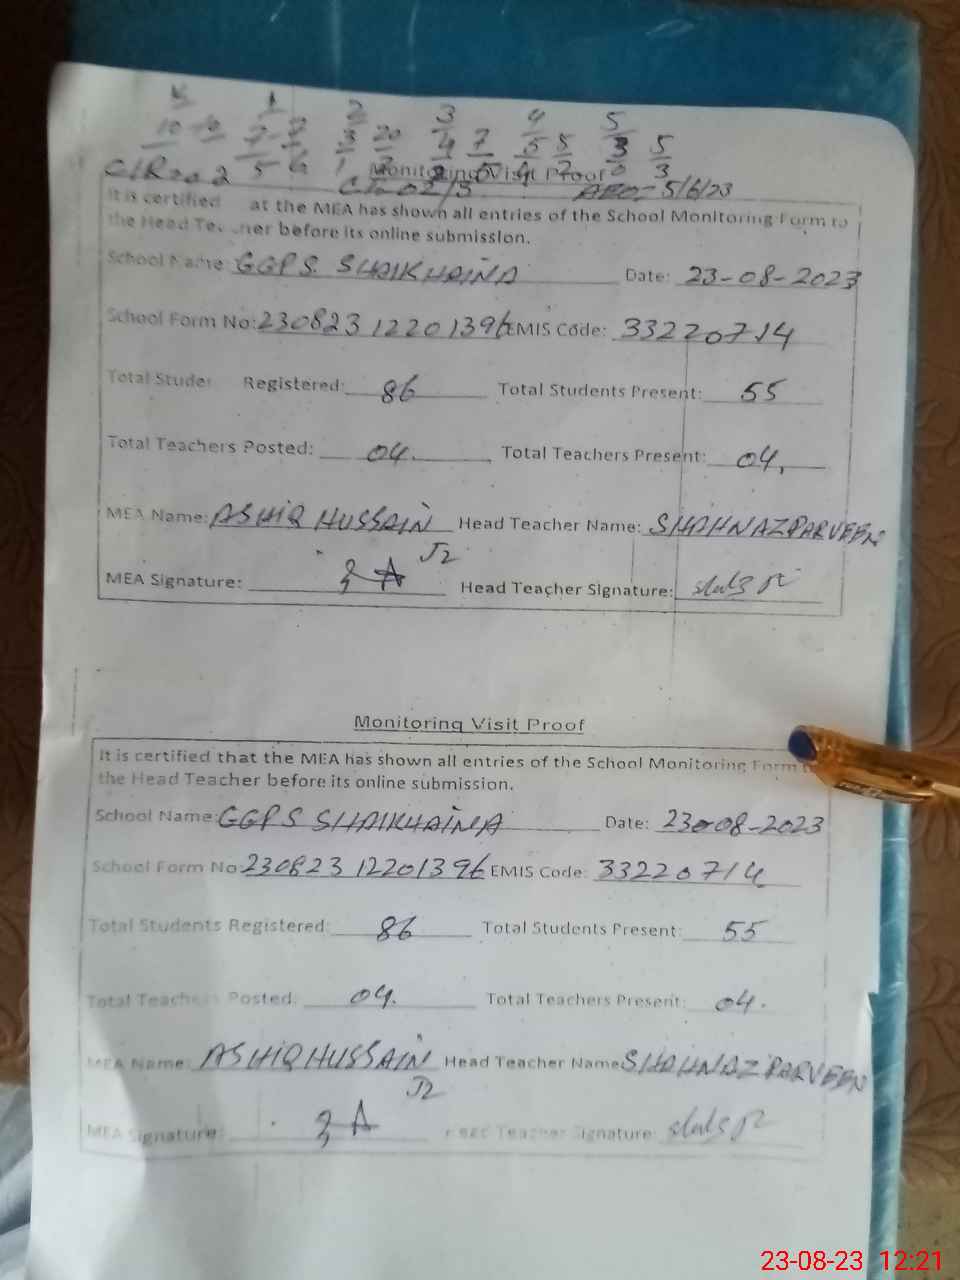 K 1 2 3 4 5
10 10 7 7 3 20 4 7 5 5 3 5
5 6 1 7 2 3
C/Room 2 Monitoring Visit Proof
AEO = 5/6/23
It is certified at the MEA has shown all entries of the School Monitoring Form to
the Head Teacher before its online submission.
School Name: GGPS SHAIKHAINA Date: 23-08-2023
School Form No: 230823 12201396 EMIS Code: 33220714
Total Studer Registered: 86 Total Students Present: 55
Total Teachers Posted: 04. Total Teachers Present: 04,
MEA Name: ASHIQ HUSSAIN Head Teacher Name: SHAHNAZ PARVEEN
J2
MEA Signature: Head Teacher Signature:
Monitoring Visit Proof
It is certified that the MEA has shown all entries of the School Monitoring Form to
the Head Teacher before its online submission.
School Name: GGPS SHAIKHAINA Date: 23-08-2023
School Form No 230823 12201396 EMIS Code: 33220714
Total Students Registered: 86 Total Students Present: 55
Total Teachers Posted: 04. Total Teachers Present: 04.
MEA Name: ASHIQ HUSSAIN Head Teacher Name SHAHNAZ PARVEEN
J2
MEA Signature: Head Teacher Signature:
23-08-23 12:21